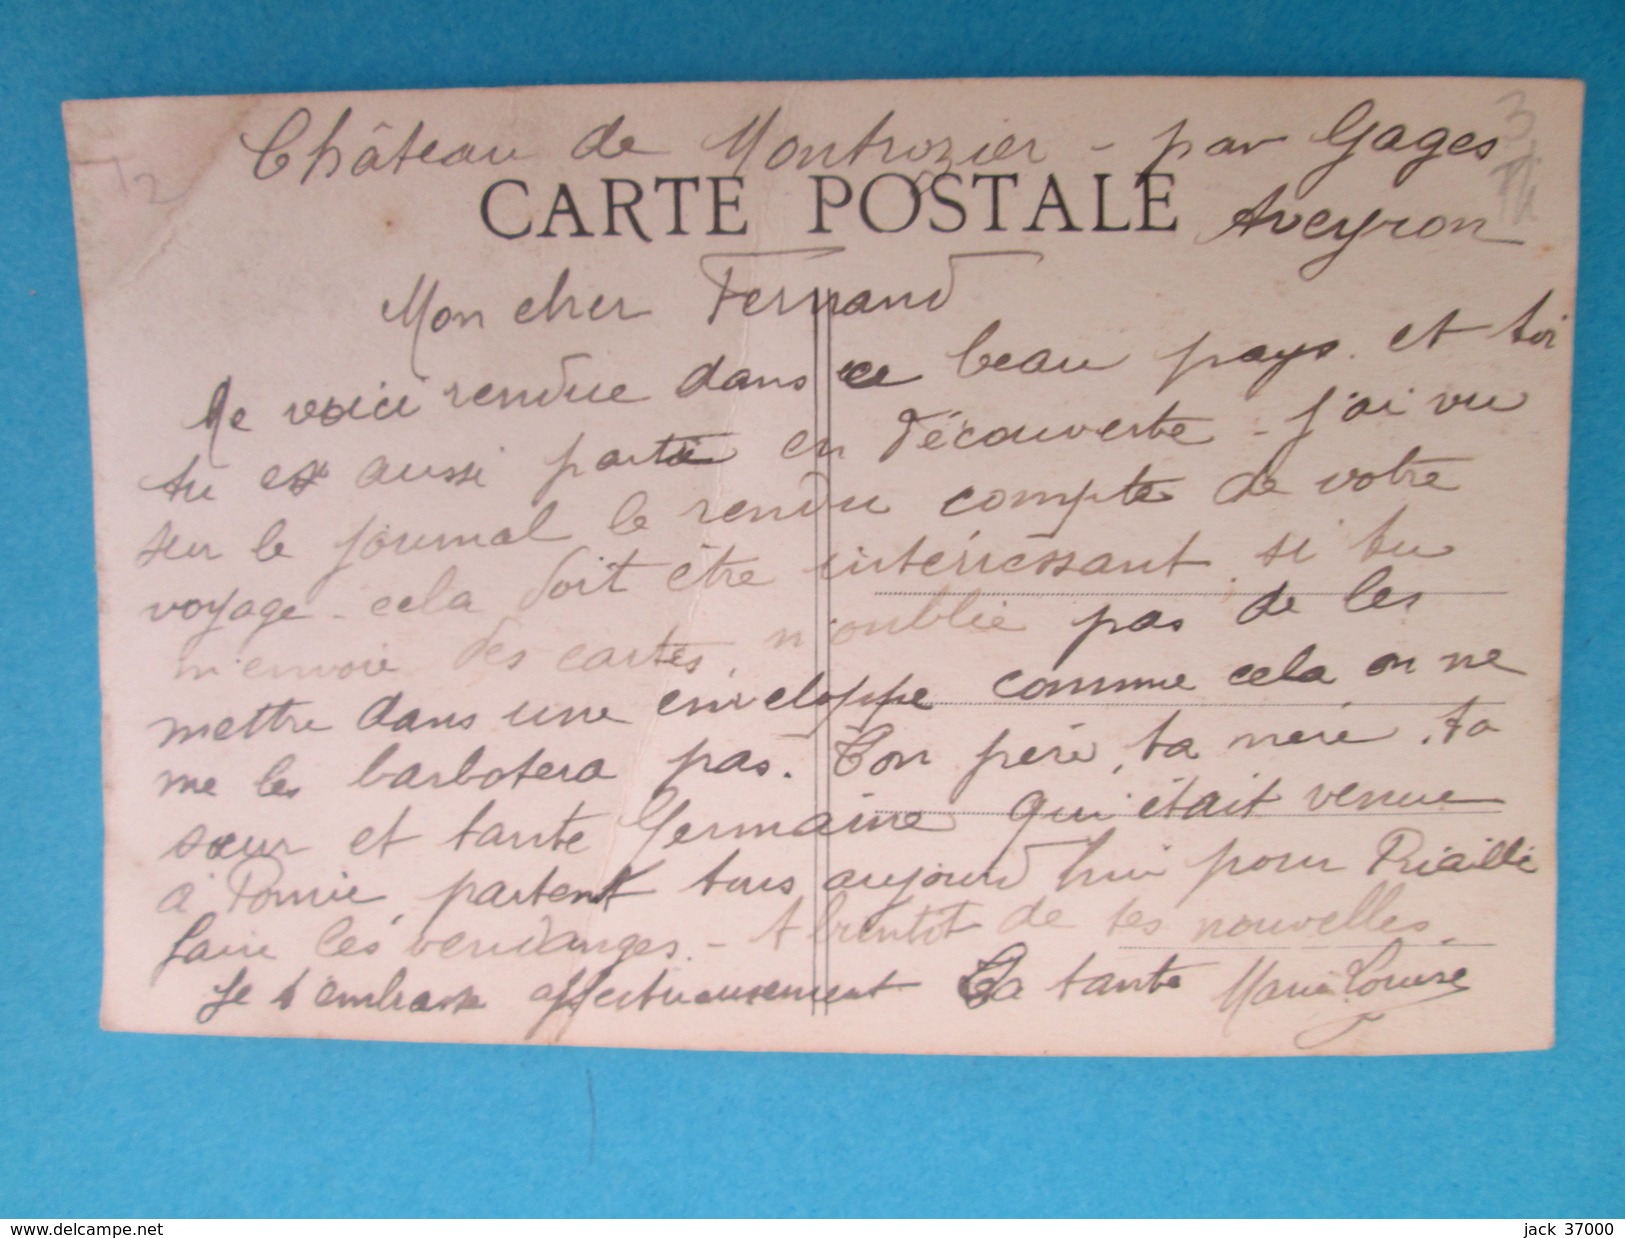 Château de Montrozier - par Gages
CARTE POSTALE
Aveyron
3
12
Mon cher Fernand
Me voici rendue dans ce beau pays. et toi
tu es aussi parti en découverte - j'ai vu
sur le journal le rendu compte de votre
voyage - cela doit être intérressant si tu
m'envoie des cartes, n'oublie pas de les
mettre dans une enveloppe comme cela on ne
me les barbotera pas. Ton père, ta mère, ta
sœur et tante Germaine qui était venue
à Pornic partent tous aujourd'hui pour Priaillé
faire les vendanges. - A bientôt de tes nouvelles.
Je t'embrasse affectueusement Ta tante Marie Louise
www.delcampe.net
jack 37000